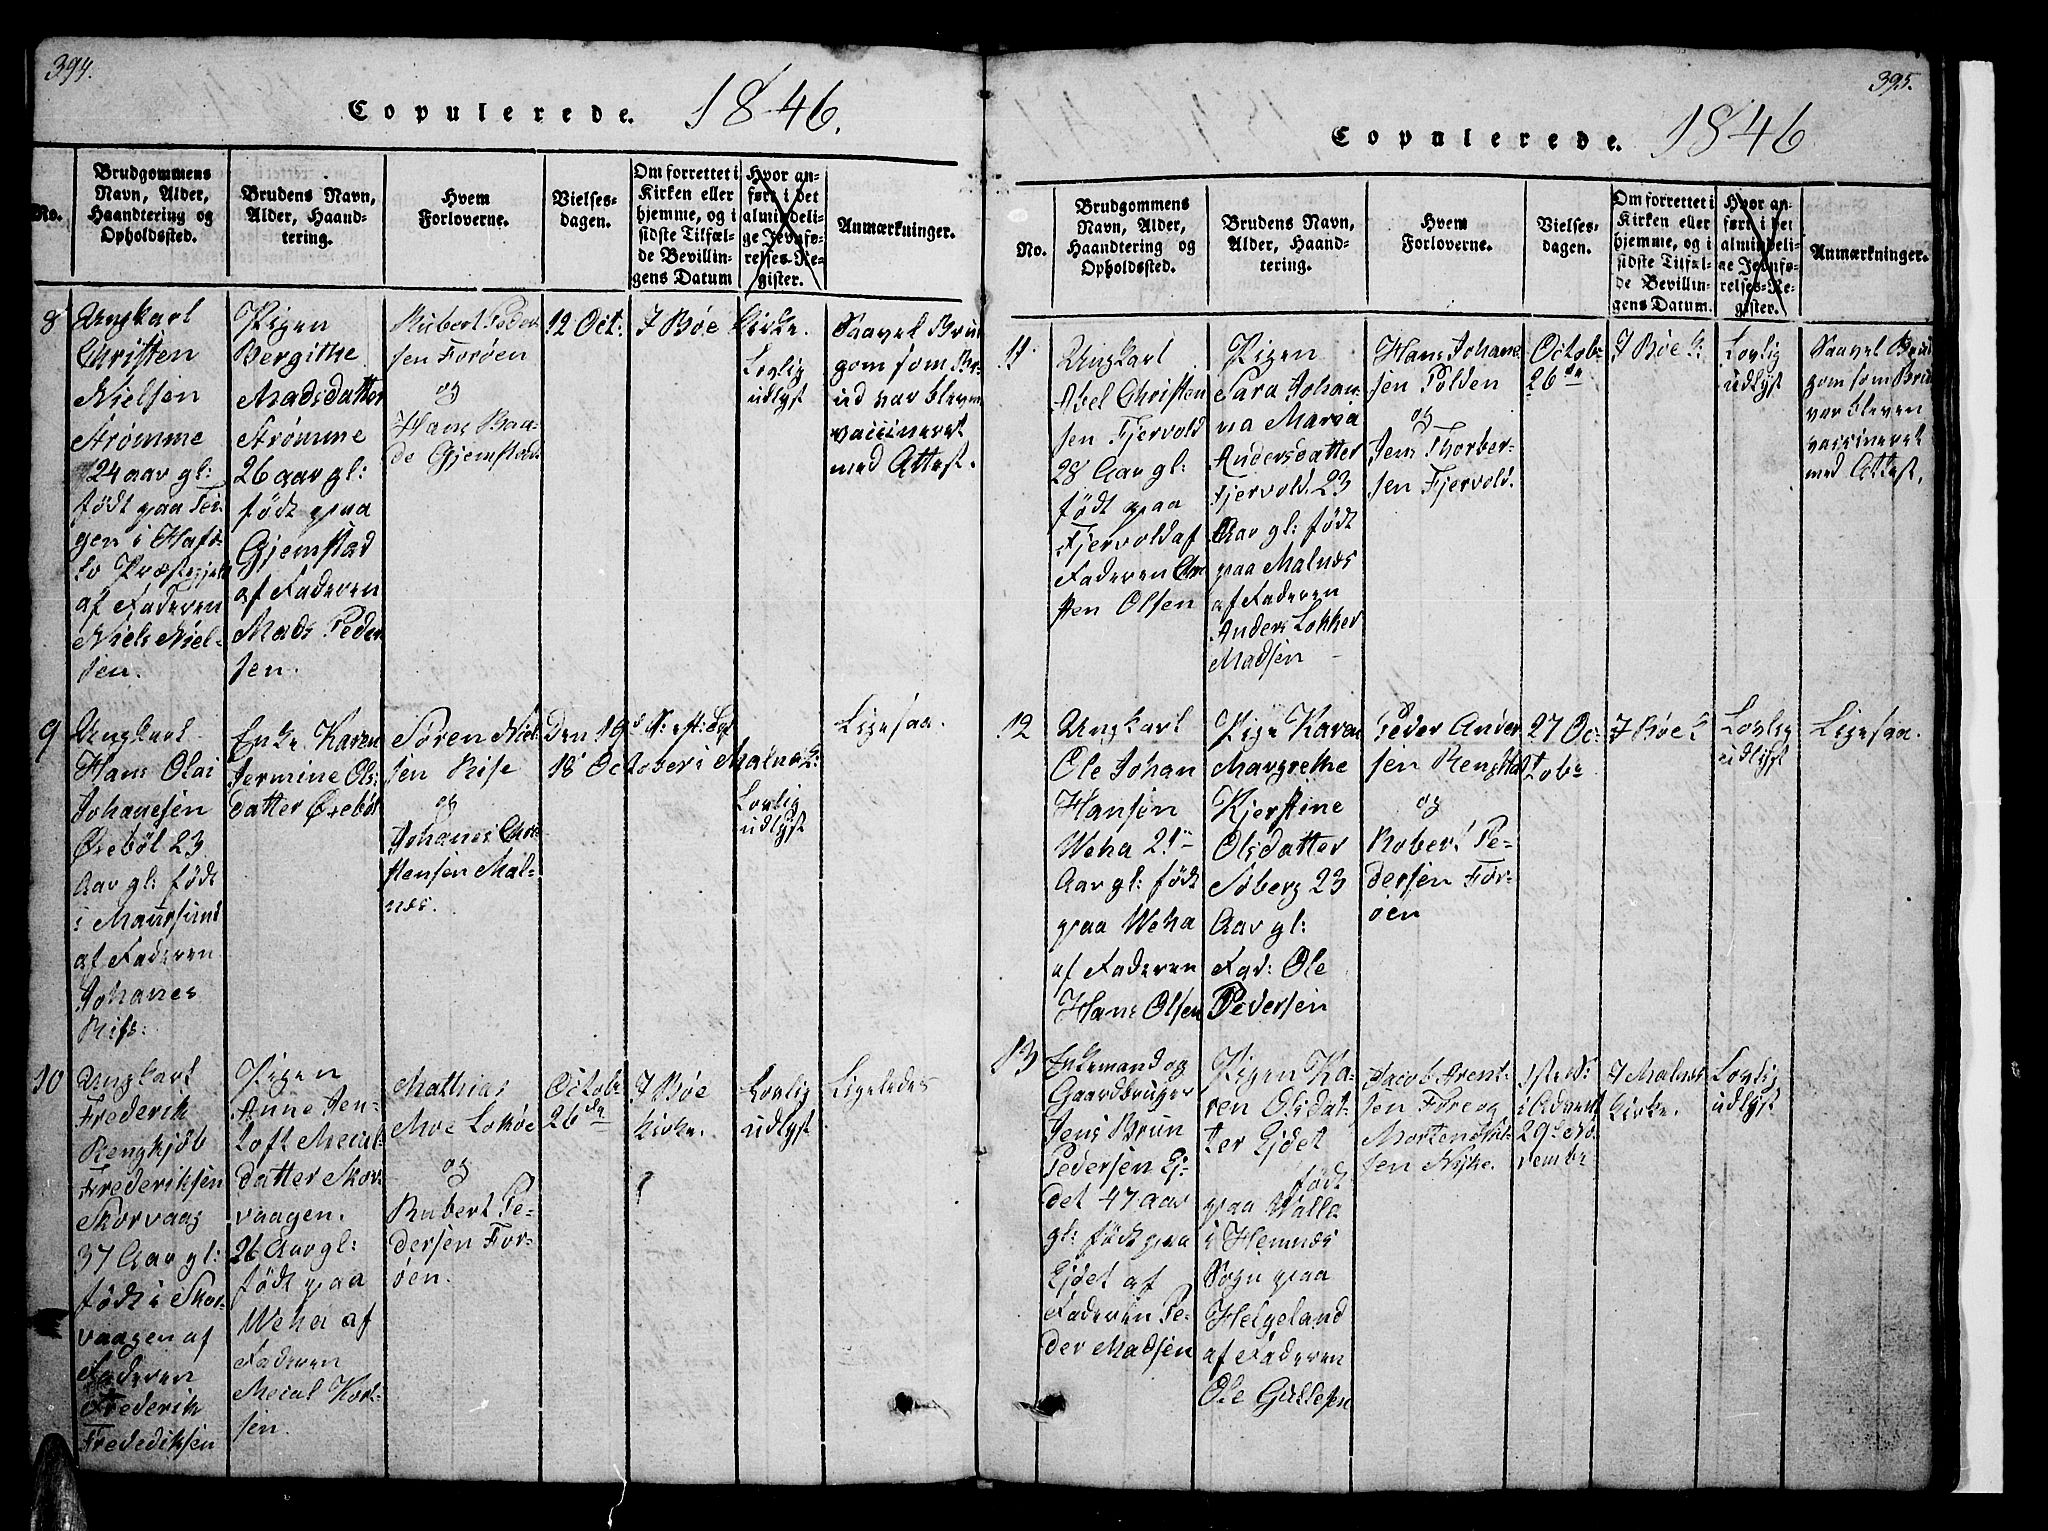 394.
Copulerede. 1846.
No.
Brudgommens
Navn, Alder,
Haandtering og
Opholdssted.
Brudens Navn,
Alder, Haand-
tering.
Hvem
Forloverne.
Vielses-
dagen.
Om forrettet i
Kirken eller
hjemme, og i
sidste Tilfæl-
de Bevillin-
gens Datum
Hvor an-
ført i det
almindeli-
ge Jevnfø-
relses-Re-
gister.
Anmærkninger.
8
Ungkarl
Christen
Nielsen
Strømme
24 aar gl:
født paa
gen i
Præstegjeld
af Faderen
Niels Niel-
sen.
Pigen
Bergithe
Madsdatter
Strømme
26 aar gl:
født paa
Gjemstad
af Faderen
Mads Peder
sen.
Rubert Peder
sen Forøen
og
Hans Baa-
de Gjemstad
12 Oct:
I Bøe
Kirke.
Lovlig
udlyst
Saavel Brud
gom som Br-
ud var bleven
vaccineret
med Attest.
9
Ungkarl
Hans Olai
Johanesen
Ørebøl 23
Aar gl: født
i Maursund
af Faderen
Johanes
Riis:
Enke Karen
Jermine Ols
datter Ørebøl
Søren Niel
sen Rise
og
Johanes Chri
stensen Mal-
næs.
Den 19
18 October i Malnæs K:
Lovlig
udlyst
Ligesaa.
10
Ungkarl
Frederik
Rengkjøb
Frederiksen
Skorvaag
37 Aar gl:
født i Skor-
vaagen af
Faderen
Frederik
Frederiksen
Pigen
Anne Jen-
toft Meial
datter Skor
vaagen.
26 Aar gl:
født paa
Weha af
Faderen
Meial Karl-
sen.
Mathias
Moe Lokøe
og
Rubert Pe-
dersen For-
øen.
Octobr
26de
I Bøe
Kirke.
Lovlig
udlyst
Ligeledes
395.
Copulerede. 1846
No.
Brudgommens
Navn, Alder,
Haandtering og
Opholdssted.
Brudens Navn,
Alder, Haand-
tering.
Hvem
Forloverne.
Vielses-
dagen.
Om forrettet i
Kirken eller
hjemme, og i
sidste Tilfæl-
de Bevillin-
gens Datum.
Hvor an-
ført i det
almindeli-
ge Jevnfø-
relses-Re-
gister.
Anmærkninger.
11.
Ungkarl
Abel Christen
sen Fjervold
28 Aar gl:
født paa
Fjervold af
Faderen Chri
sten Olsen
Pigen
Sara Johan-
na Maria
Andersdatter
Fjervold. 23
Aar gl: født
paa Malnæs
af Faderen
Anders Lokker
Madsen
Hans Johane
sen Polden
og
Jens Thorber-
sen Fjervold.
Octobr
26de
I Bøe K.
Lovlig
udlyst
Saavel Brud
gom som Brud
var bleven
vaccineret
med Attest.
12
Ungkarl
Ole Johan
Hansen
Weha 21
Aar gl: født
paa Weha
af Faderen
Hans Olsen
Pige Karen
Margrethe
Kjerstine
Olsdatter
Søberg 23
Aar gl:
Fad: Ole
Pedersen
Peder Ander
sen Rengstad
og
Robert Pe-
dersen For-
øen
27 Oc:
tobr
I Bøe K
Lovlig
udlyst
Ligesaa.
13
Enkemand og
Gaardbruger
Jens Brun
Pedersen Ej-
det 47 aar
gl: født paa
Ejdet af
Faderen Pe-
der Madsen
Pigen Ka-
ren Olsdat-
ter Ejdet
født
paa Walla
i Hemnæs
Sogn paa
Helgeland
af Faderen
Ole Gullesen
Jacob Arent-
sen Føre og
Morten
sen Nyke.
i Advent
29de No
vembr
I Malnæs
Kirke.
Lovlig
udlyst